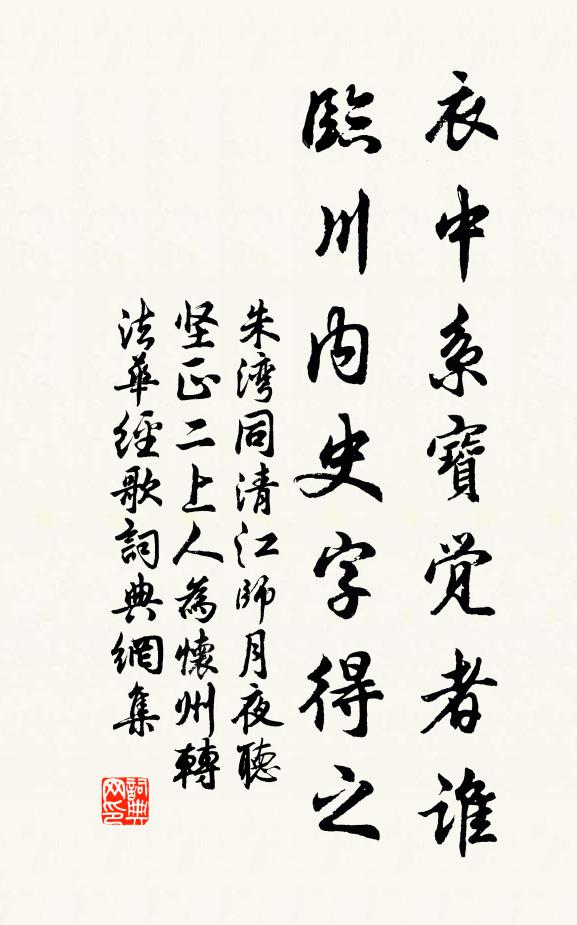 衣中系寶覺者誰
臨川內史字得之
朱湾同清江師月夜聴
坚正二上人為懷州轉
法華經歌詞典網集
詞典
网印